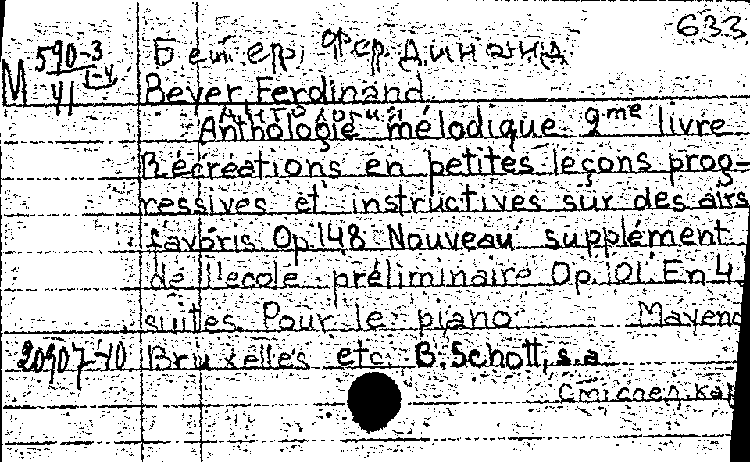 633
М 590-3
41 1-4
Бейер, Фердинанд
Beyer Ferdinand
Антология
Anthologie mélodique. 2me livre
Récréations en petites leçons prog-
ressives et instructives sur des airs
favoris. Op.148. Nouveau supplément
de l'ecole préliminaire Op.101. En 4
suites. Pour le piano Mayenc
20907-40 Bruxelles etc. B. Schott, s.a.
См. след. кар